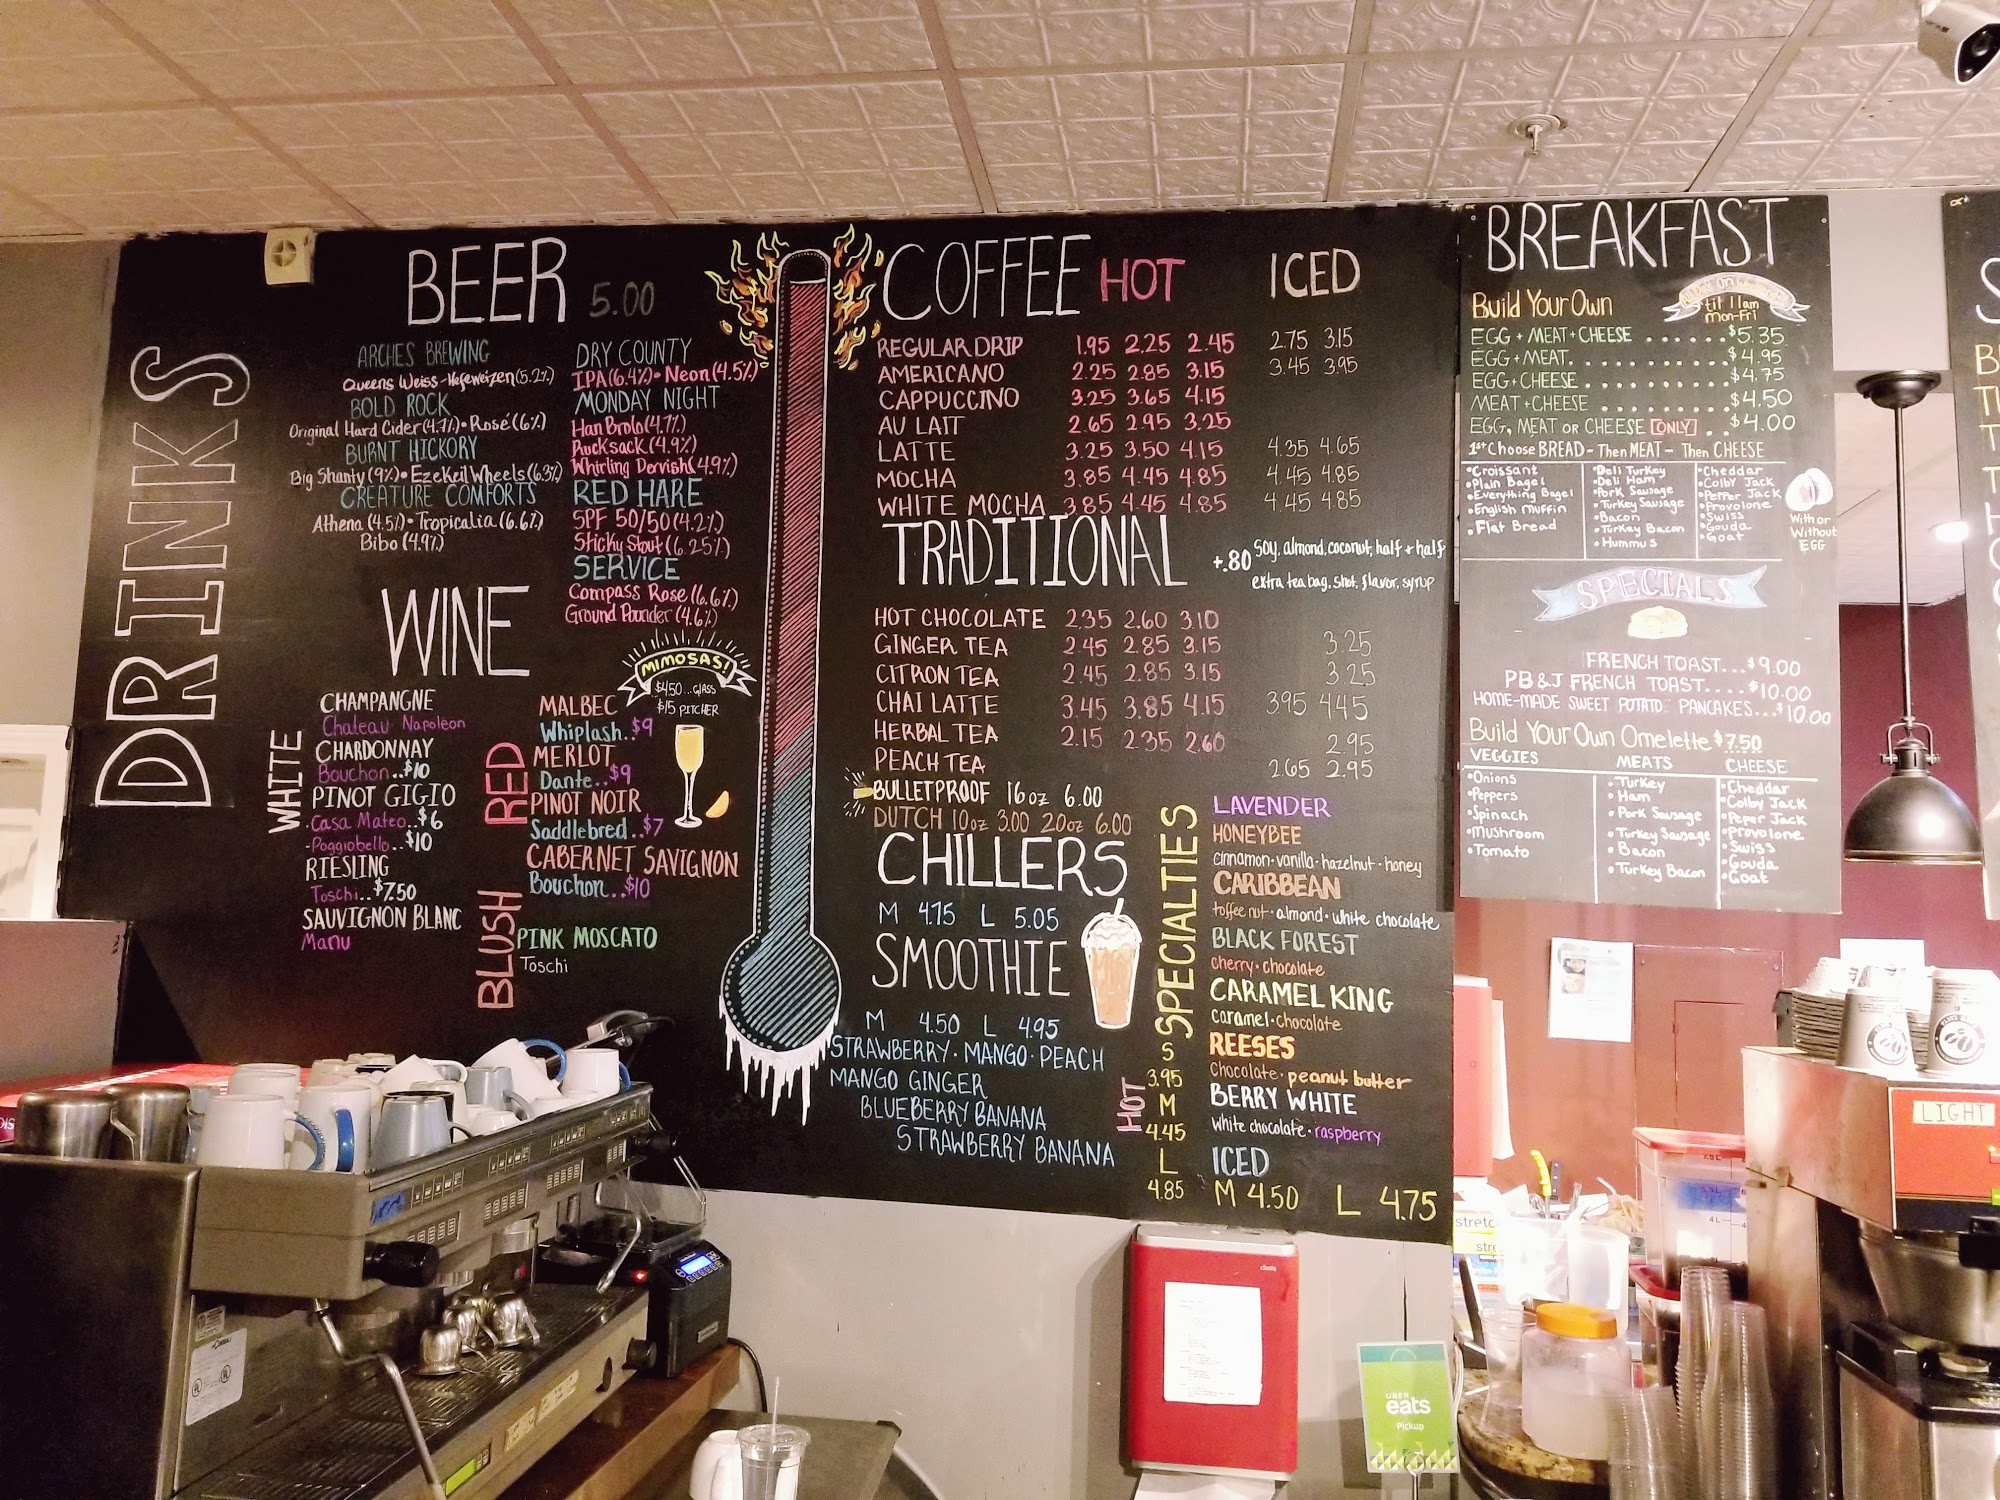 DRINKS
BEER 5.00
ARCHES BREWING
Queens Weiss-Hefeweizen (5.2%)
BOLD ROCK
Original Hard Cider (4.7%) • Rosé (6%)
BURNT HICKORY
Big Shanty (9%) • Ezekeil Wheels (6.3%)
CREATURE COMFORTS
Athena (4.5%) • Tropicalia (6.6%)
Bibo (4.9%)
DRY COUNTY
IPA (6.4%) • Neon (4.5%)
MONDAY NIGHT
Han Brolo (4.7%)
Rucksack (4.9%)
Whirling Dervish (4.9%)
RED HARE
SPF 50/50 (4.2%)
Sticky Stout (6.25%)
SERVICE
Compass Rose (6.6%)
Ground Pounder (4.6%)
WINE
WHITE
CHAMPANGNE
Chateau Napoleon
CHARDONNAY
Bouchon..$10
PINOT GIGIO
-Casa Mateo..$6
-Poggiobello..$10
RIESLING
Toschi..$7.50
SAUVIGNON BLANC
Manu
RED
MALBEC
Whiplash..$9
MERLOT
Dante..$9
PINOT NOIR
Saddlebred..$7
CABERNET SAVIGNON
Bouchon..$10
BLUSH
PINK MOSCATO
Toschi
MIMOSAS!
$4.50...GLASS
$15 PITCHER
COFFEE HOT ICED
REGULAR DRIP 1.95 2.25 2.45 2.75 3.15
AMERICANO 2.25 2.85 3.15 3.45 3.95
CAPPUCCINO 3.25 3.65 4.15
AU LAIT 2.65 2.95 3.25
LATTE 3.25 3.50 4.15 4.35 4.65
MOCHA 3.85 4.45 4.85 4.45 4.85
WHITE MOCHA 3.85 4.45 4.85 4.45 4.85
TRADITIONAL
+.80 Soy, almond, coconut, half + half
extra tea bag, shot, flavor, syrup
HOT CHOCOLATE 2.35 2.60 3.10
GINGER TEA 2.45 2.85 3.15 3.25
CITRON TEA 2.45 2.85 3.15 3.25
CHAI LATTE 3.45 3.85 4.15 3.95 4.45
HERBAL TEA 2.15 2.35 2.60 2.95
PEACH TEA 2.65 2.95
BULLETPROOF 16oz 6.00
DUTCH 10oz 3.00 20oz 6.00
CHILLERS
M 4.75 L 5.05
SMOOTHIE
M 4.50 L 4.95
STRAWBERRY · MANGO · PEACH
MANGO GINGER
BLUEBERRY BANANA
STRAWBERRY BANANA
SPECIALTIES
HOT
S
3.95
M
4.45
L
4.85
LAVENDER
HONEYBEE
cinnamon · vanilla · hazelnut · honey
CARIBBEAN
toffee nut · almond · white chocolate
BLACK FOREST
cherry · chocolate
CARAMEL KING
caramel · chocolate
REESES
chocolate · peanut butter
BERRY WHITE
white chocolate · raspberry
ICED
M 4.50 L 4.75
BREAKFAST
til 11am
Mon-Fri
Build Your Own
EGG + MEAT + CHEESE ...... $5.35
EGG + MEAT. ......... $4.95
EGG + CHEESE ......... $4.75
MEAT + CHEESE ........ $4.50
EGG, MEAT OR CHEESE ONLY .. $4.00
1st Choose BREAD - Then MEAT - Then CHEESE
• Croissant
• Plain Bagel
• Everything Bagel
• English Muffin
• Flat Bread
• Deli Turkey
• Deli Ham
• Pork Sausage
• Turkey Sausage
• Bacon
• Turkey Bacon
• Hummus
• Cheddar
• Colby Jack
• Pepper Jack
• Provolone
• Swiss
• Gouda
• Goat
With or
Without
EGG
SPECIALS
FRENCH TOAST...$9.00
PB&J FRENCH TOAST....$10.00
HOME-MADE SWEET POTATO PANCAKES...$10.00
Build Your Own Omelette $7.50
VEGGIES MEATS CHEESE
• Onions
• Peppers
• Spinach
• Mushroom
• Tomato
• Turkey
• Ham
• Pork Sausage
• Turkey Sausage
• Bacon
• Turkey Bacon
• Cheddar
• Colby Jack
• Peper Jack
• Provolone
• Swiss
• Gouda
• Goat
LIGHT
UBER
eats
Pickup